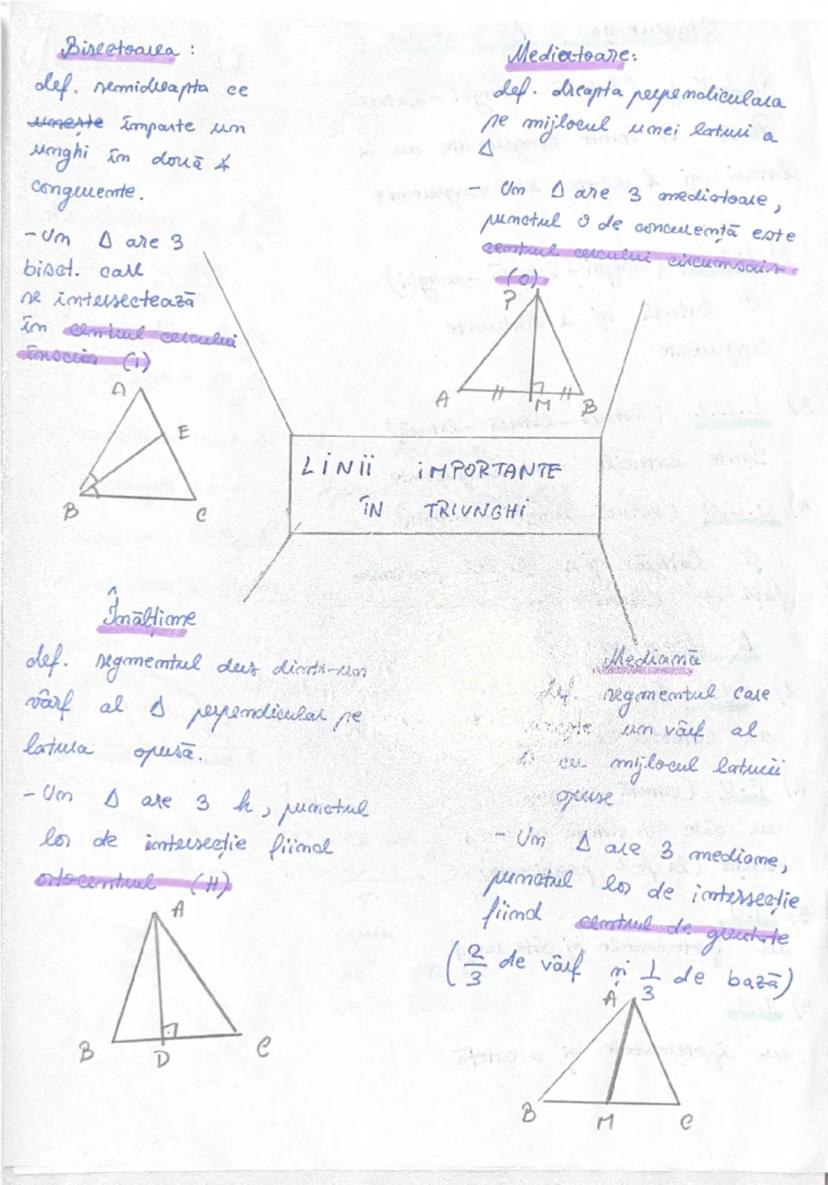 Bisectoarea :
def. semidreapta ce
unește împarte un
unghi în două ∢
congruente.
- Un Δ are 3
bisct. care
se intersectează
în centrul cercului
înscris (I)
A
E
B
C
Mediatoare:
def. dreapta perpendiculara
pe mijlocul unei laturi a
Δ
- Un Δ are 3 mediatoare,
punctul O de concurență este
centrul cercului circumscris
(O)
P
A
M
B
LINII IMPORTANTE
ÎN TRIUNGHI
Înălțime
def. segmentul dus dintr-un
vârf al Δ perpendicular pe
latura opusă.
- Un Δ are 3 h, punctul
lor de intersecție fiind
ortocentrul (H)
A
B
D
C
Mediană
def. segmentul care
unește un vârf al
Δ cu mijlocul laturii
opuse
- Un Δ are 3 mediane,
punctul lor de intersecție
fiind centrul de greutate
(2/3 de vârf și 1/3 de bază)
A
B
M
C